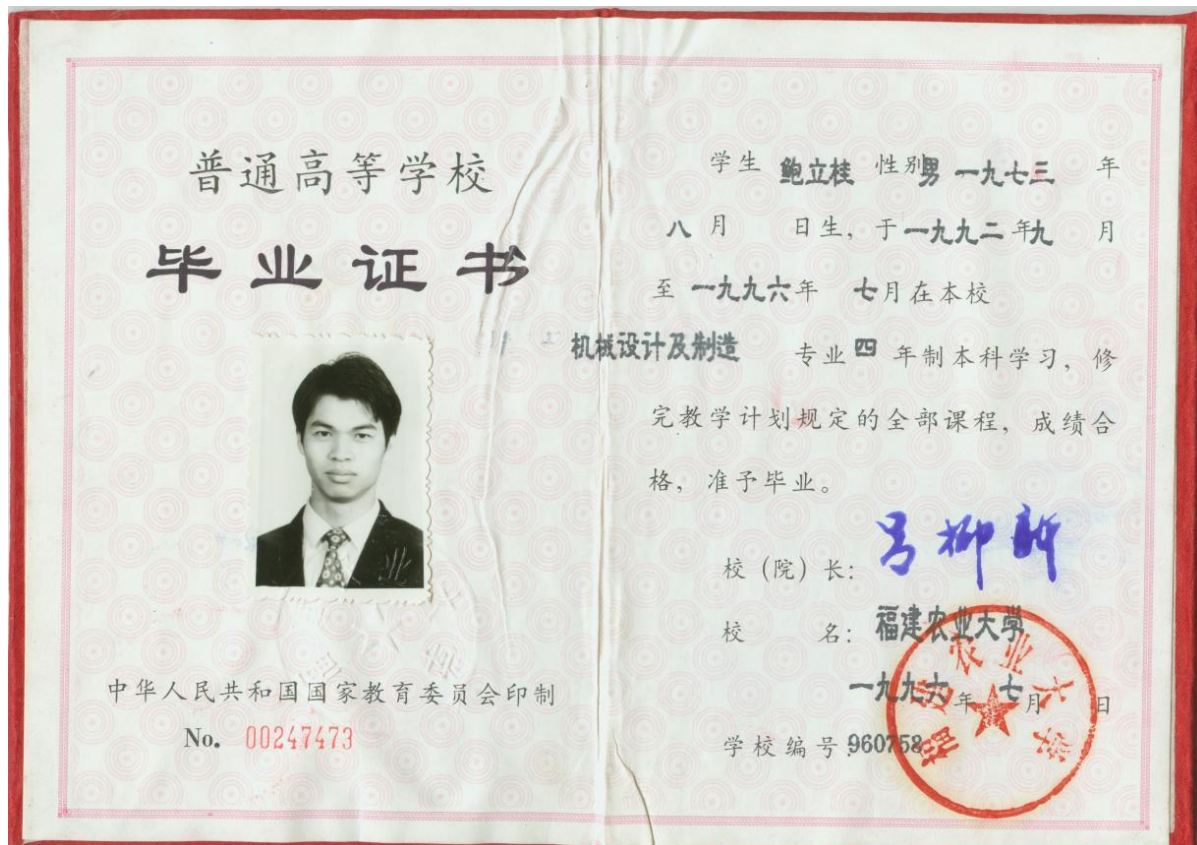 普通高等学校
毕业证书
中华人民共和国国家教育委员会印制
No. 00247473
学生 鲍立桂 性别男 一九七三 年
八月 日生, 于一九九二年九 月
至一九九六年 七月在本校
机械设计及制造 专业四年制本科学习, 修
完教学计划规定的全部课程, 成绩合
格, 准予毕业。
校(院)长:
校 名: 福建农业大学
一九九六年七月 日
学校编号:960758
福建农业大学